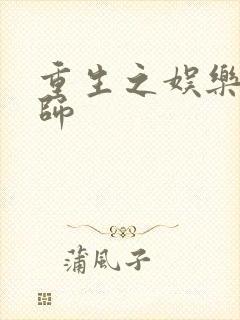 重生之娛樂
師
蒲風子